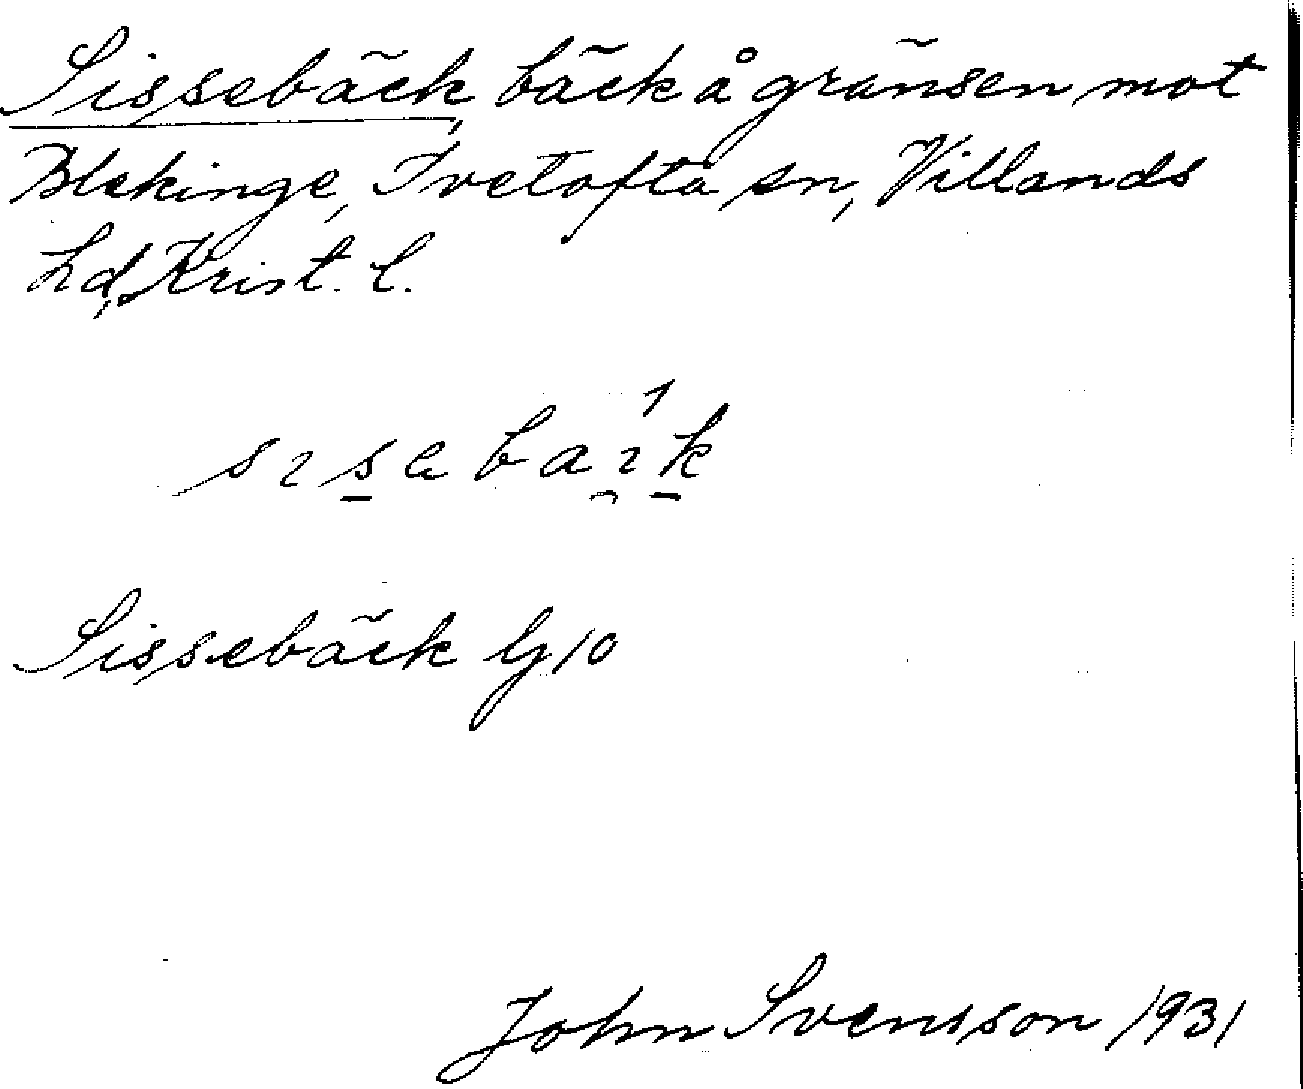 Sissebäck, bäck å gränsen mot
Blekinge, Ivetofta sn, Villands
hd, Krist. l.
sɪsəbaɪ̯k
Sissebäck G10
John Svensson 1931